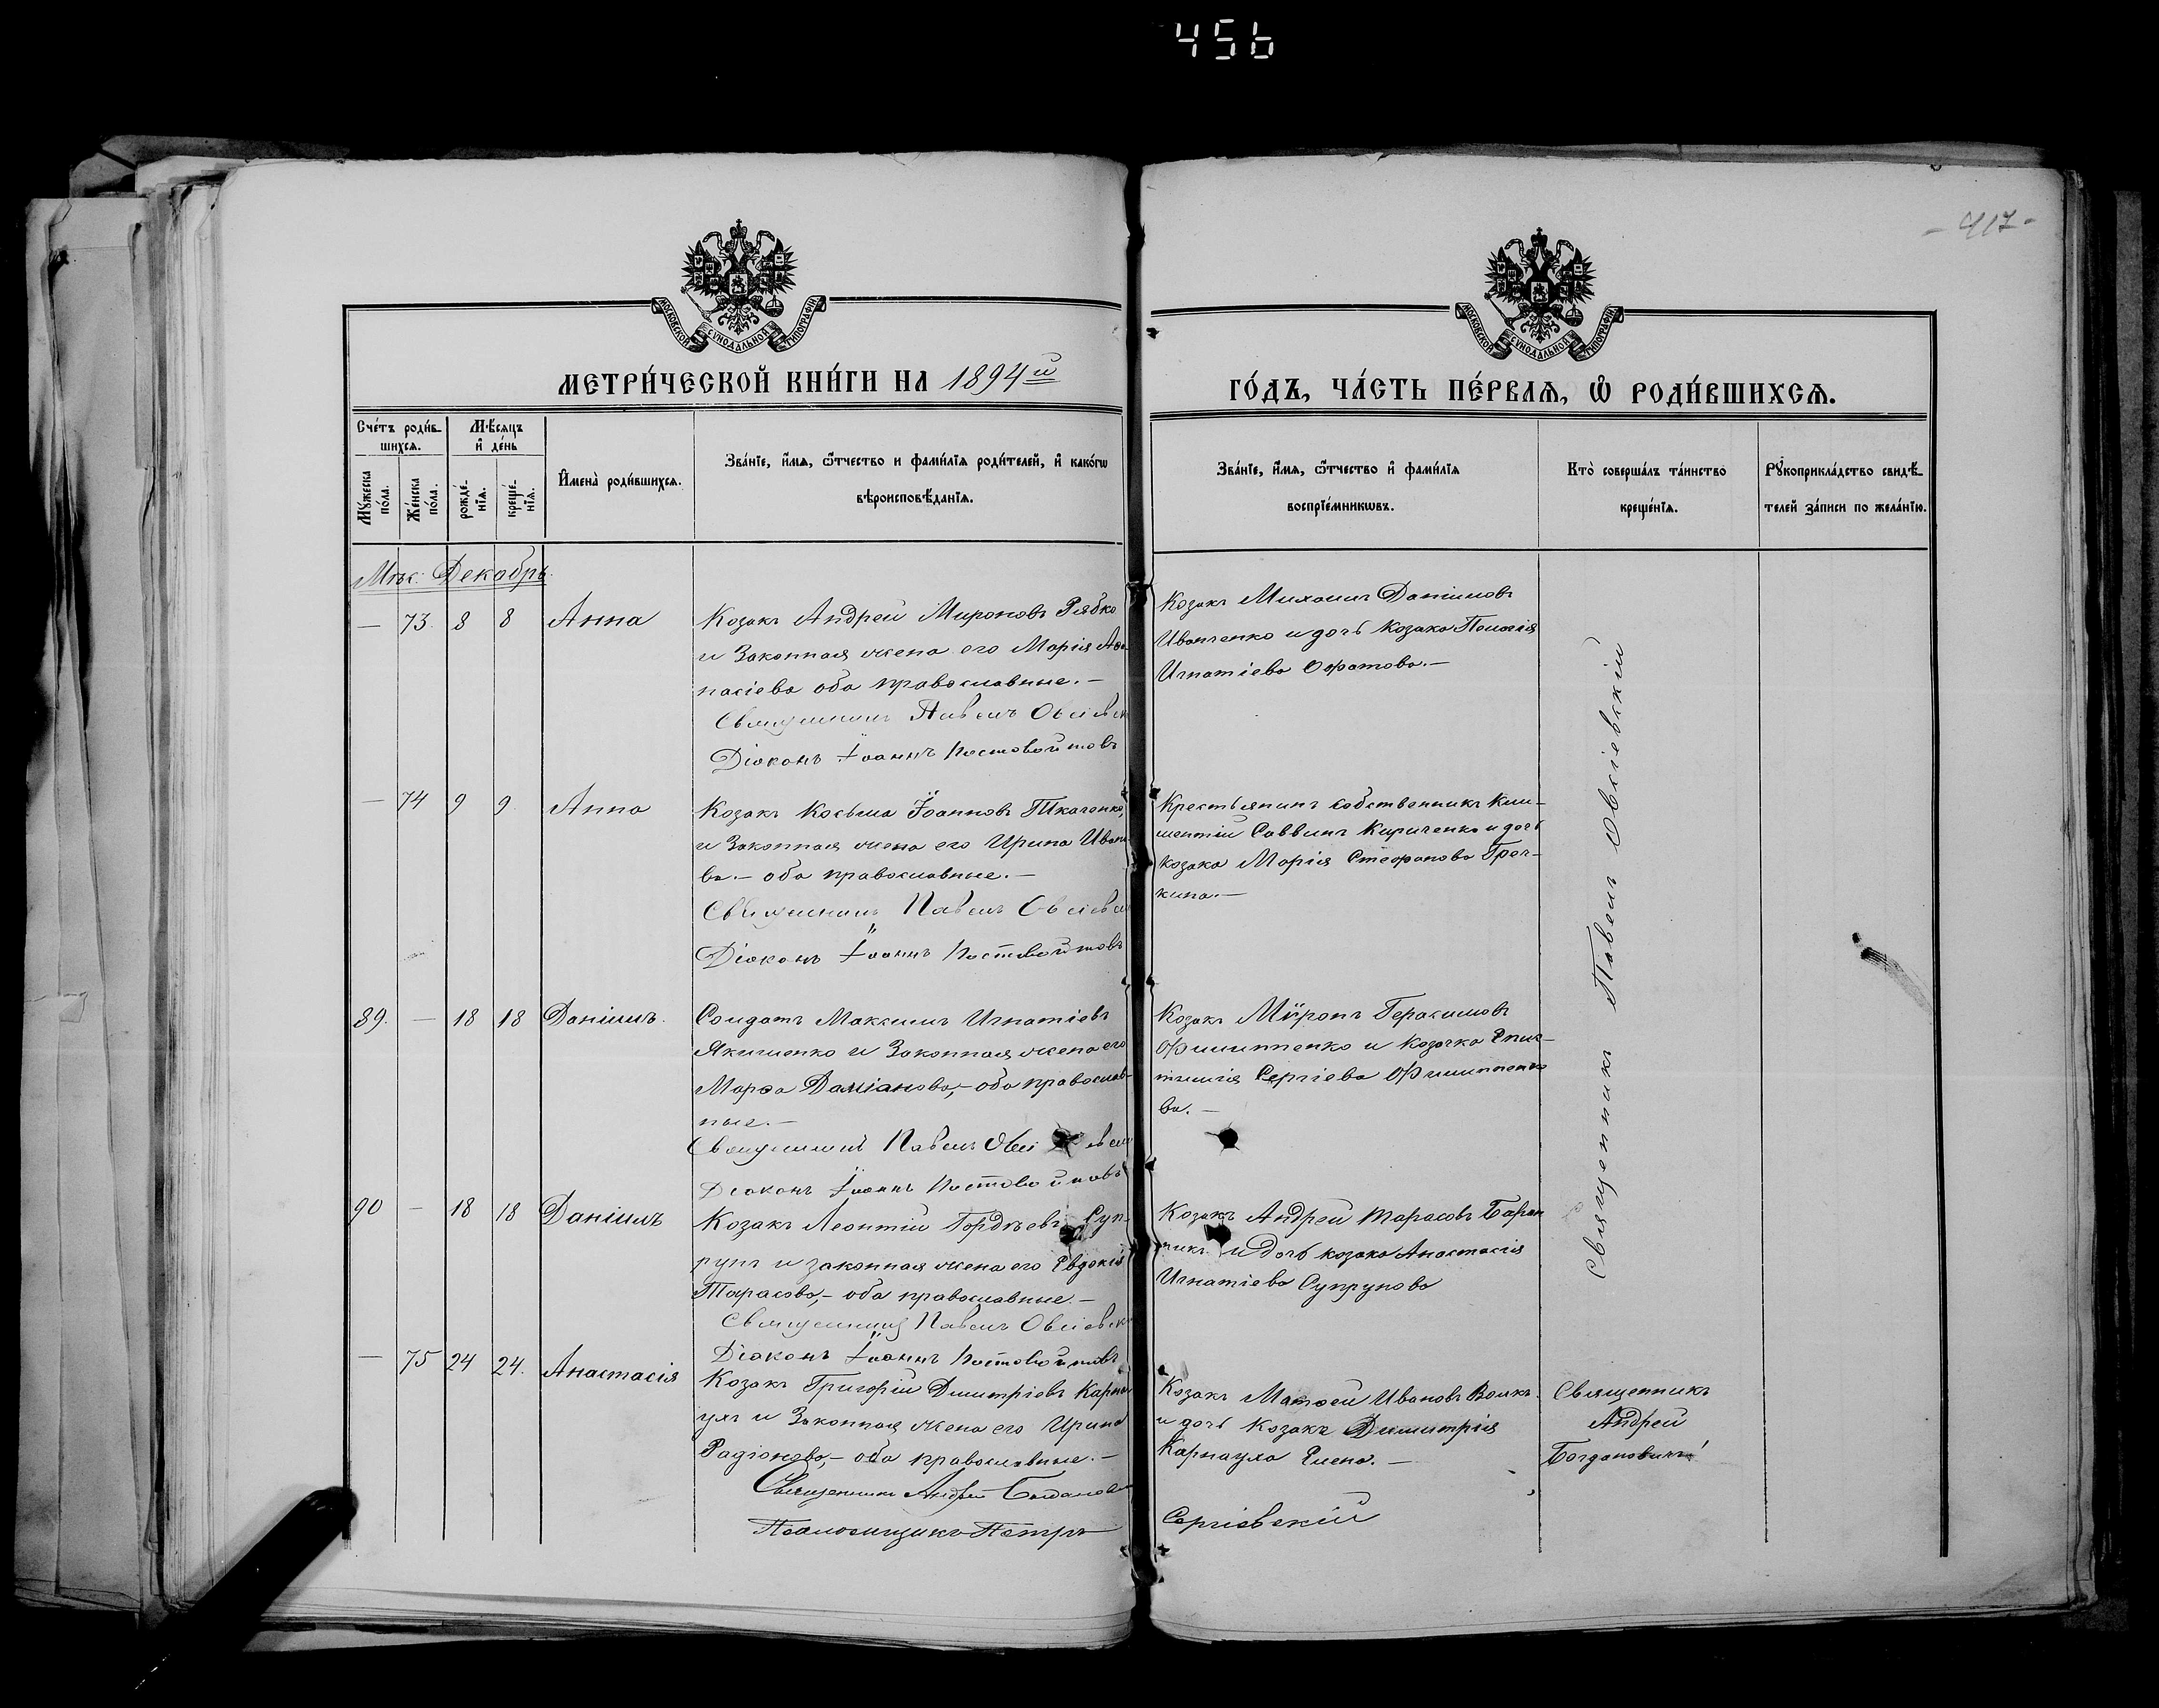 456
- 417 -
МОСКОВСКОЙ СѴНОДАЛЬНОЙ ТИПОГРАФІИ
МОСКОВСКОЙ СѴНОДАЛЬНОЙ ТИПОГРАФІИ
МЕТРИ́ЧЕСКОЙ КНИ́ГИ НА 1894й
ГО́ДЪ, ЧА́СТЬ ПЕ́РВАЯ, Ѡ҆ РОДИ́ВШИХСЯ.
Сче́тъ роди́в-
шихся.
Мꙋжеска по́ла.
Же́нска по́ла.
Мѣ́сяцъ
и҆ де́нь
рожде́-нїя.
креще́-нїя.
И҆мена̀ роди́вшихся.
Зва́нїе, и҆́мя, ѻ҆́тчество и фами́лїя роди́телей, и҆ како́гѡ
вѣроисповѣ́данїя.
Зва́нїе, и҆́мя, ѻ҆́тчество и҆ фами́лїя
воспрїе́мникѡвъ.
Кто̀ соверша́лъ та́инство
креще́нїя.
Рꙋкоприкла́дство свидѣ́-
телей за́писи по жела́нїю.
Мѣс: Декабрь.
— 73. 8 8 Анна
Козакъ Андрей Мироновъ Рябко
и Законная жена его Марія Аѳа-
насіева оба православные. —
Священникъ Павелъ Овсіевск
Діаконъ Іоаннъ Постовойтовъ
Козакъ Михаилъ Даніиловъ
Иванченко и дочь козака Пелагія
Игнатіева
— 74 9 9. Анна
Козакъ Косьма Іоанновъ Ткаченко,
и Законная жена его Ирина Ивано-
ва. — оба православные. —
Священникъ Павелъ Овсіевск
Діаконъ Іоаннъ Постовойтовъ
Крестьянинъ собственникъ Кли-
ментій Саввинъ Кириченко и дочь
козака Марія Стефанова Греч-
кина. —
89. — 18 18 Даніилъ.
Солдатъ Максимъ Игнатіевъ
Якименко и Законная жена его
Марѳа Даміанова, — оба православ-
ные. —
Священникъ Павелъ Овсіевск
Діаконъ Іоаннъ Постовойтовъ
Козакъ Миронъ Герасимовъ
Филиппенко и козачка Епис-
тимія Сергіева Филиппенко-
ва. —
90 — 18 18 Даніилъ
Козакъ Леонтій Гордѣевъ Суп-
рунъ и законная жена его Евдокія
Тарасова, — оба православные. —
Священникъ Павелъ Овсіевск
Діаконъ Іоаннъ Постовойтовъ
Козакъ Андрей Тарасовъ Баран
никъ и дочь козака Анастасія
Игнатіева Супрунова
Священникъ Павелъ Овсіевскій
— 75 24 24. Анастасія
Козакъ Григорій Димитріевъ Карна-
ухъ и Законная жена его Ирина
Радіонова, — оба православные. —
Священникъ Андрей Богданович
Козакъ Матѳей Ивановъ Волкъ
и дочь Козака Димитрія
Карнауха Елена. —
Священникъ
Андрей
Богдановичъ
Псаломщикъ Петръ Сергіевскій